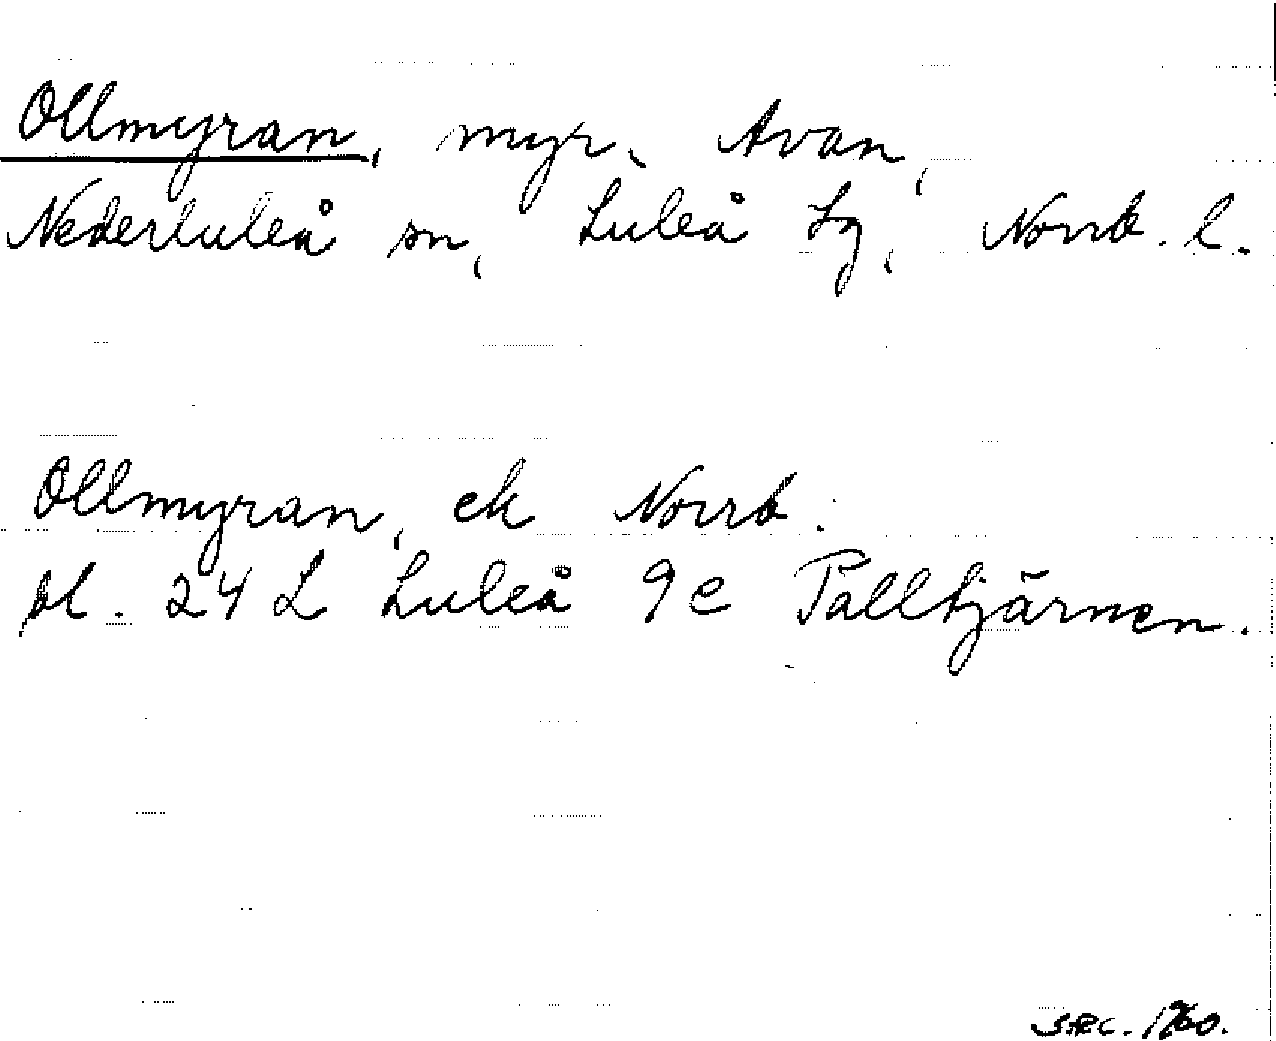 Ollmyran, myr, Avan,
Nederluleå sn, Luleå tg, Norrb. l.
Ollmyran, ek Norrb.
bl. 24 L Luleå 9 e Talltjärnen.
1960.